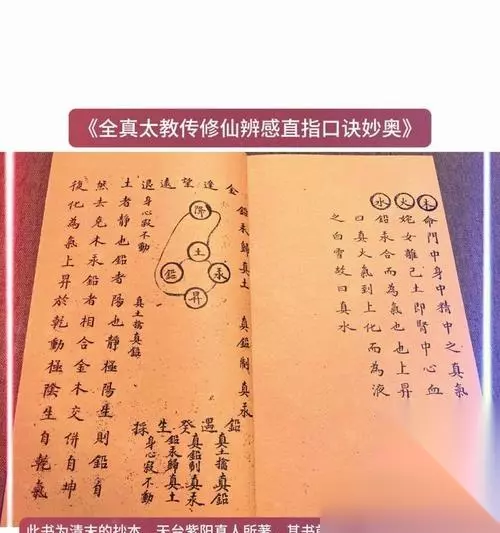 《全真太教传修仙辨感直指口诀妙奥》
木
命門中身中精中之真氣
火
姹女離己土即腎中心血
水
鉛汞合而為氣也上昇
曰真火氣到上化而為液
之白雪故曰真水
金逢望遠退
鉛汞歸真土 真鉛制真汞
降
土
鉛
汞
昇
真土擒真鉛
身心寂不動
鉛遇癸生採
真土擒真鉛
真鉛制真汞
鉛汞歸真土
身心寂不動
土者靜也鉛者陽也靜極陽生則鉛自
然去克木汞鉛者相合金木交併自坤
後化為氣上昇於乾動極陰生自乾氣
此书为清末的抄本，天台紫阳真人所著，其书